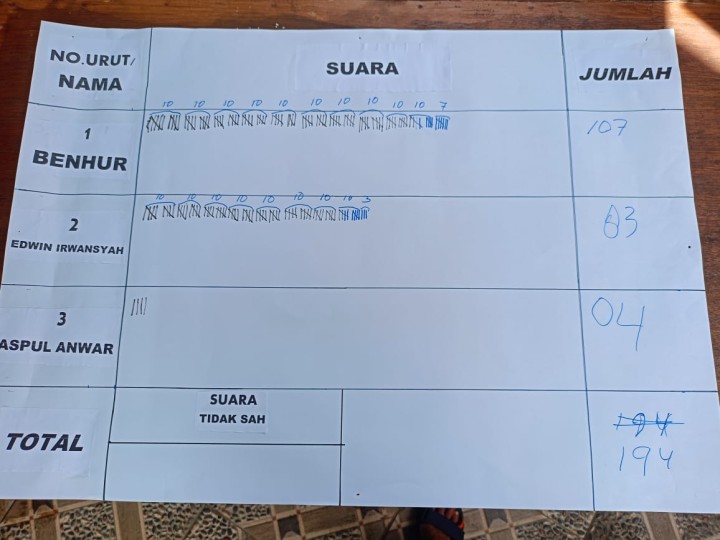 NO.URUT/
NAMA
SUARA
JUMLAH
10 10 10 10 10 10 10 10 10 10 7
1
BENHUR
107
10 10 10 10 10 10 10 3
2
EDWIN IRWANSYAH
83
3
ASPUL ANWAR
04
SUARA
TIDAK SAH
TOTAL
194
194